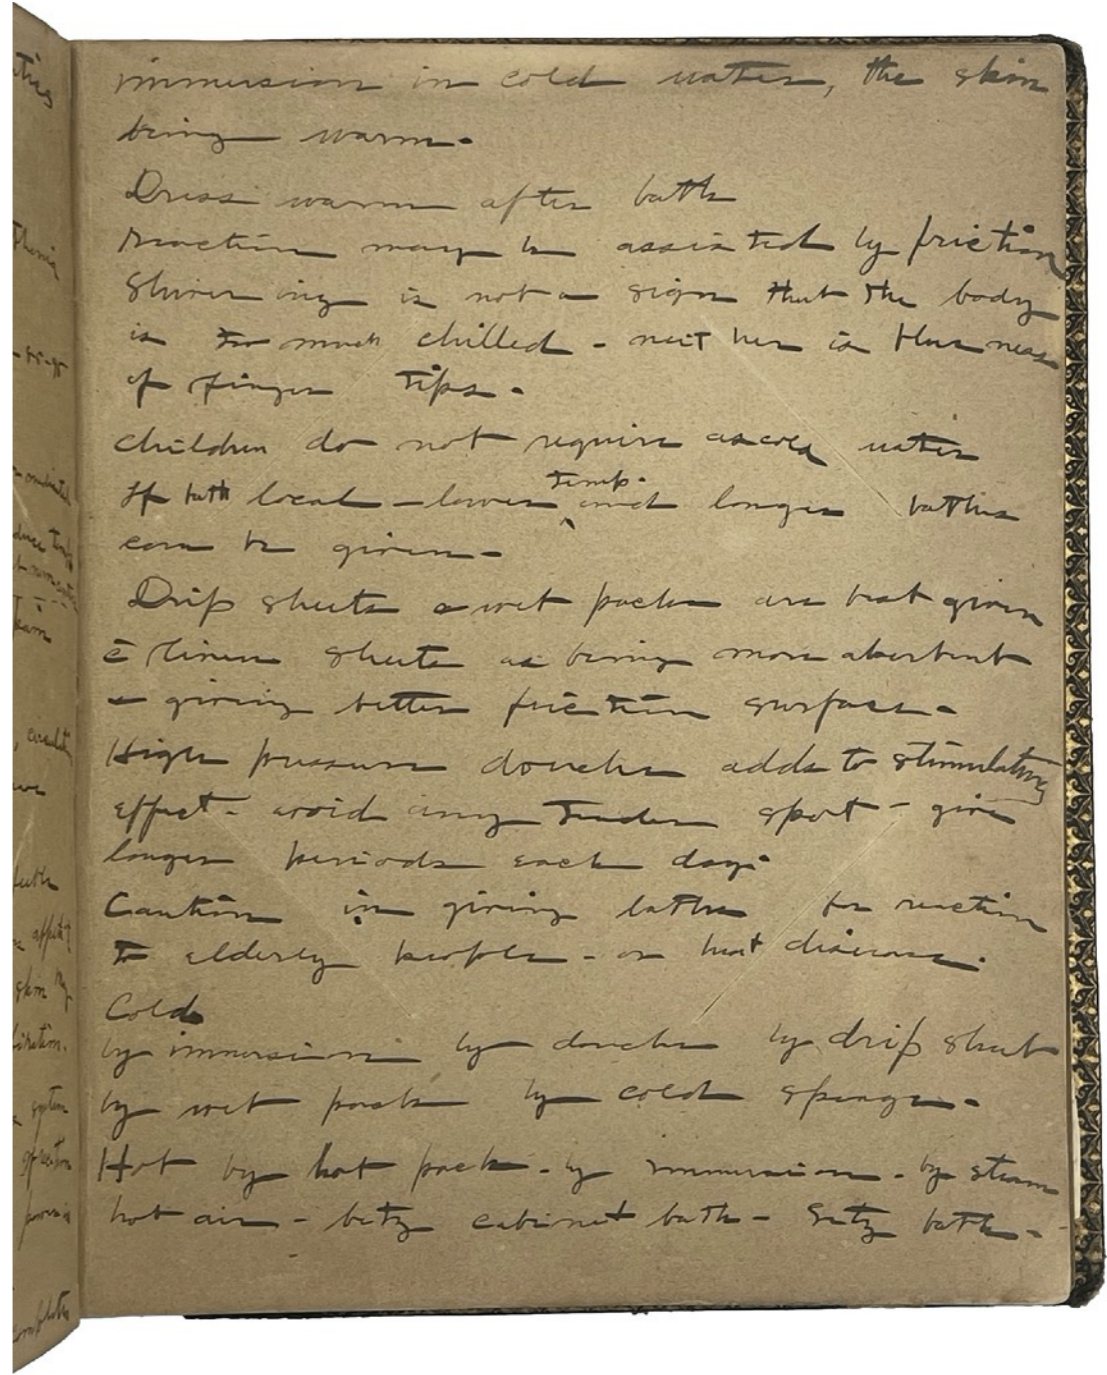 immersion in cold water, the skin
being warm.
Dress warm after bath
Reaction may be assisted by friction
Shivering is not a sign that the body
is too much chilled - neither is blueness
of finger tips.
Children do not require as cold water
If bath local - lower temp. and longer baths
can be given -
Drip sheets or wet packs are best given
c̄ linen sheets as being more absorbent
& giving better friction surface.
High pressure douches adds to stimulating
effect. avoid any tender spot - give
longer periods each day.
Caution in giving baths for reaction
to elderly people - or heart disease.
Cold
by immersion by douche by drip sheet
by wet pack by cold sponge.
Hot by hot pack. by immersion. by steam
hot air - betz cabinet bath - Sitz bath -